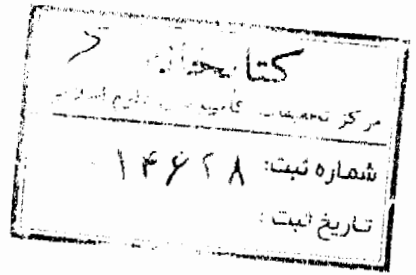 کتابخانه
مرکز تحقیقات کامپیوتری علوم اسلامی
شماره ثبت: ۱۴۶۲۸
تاریخ ثبت: